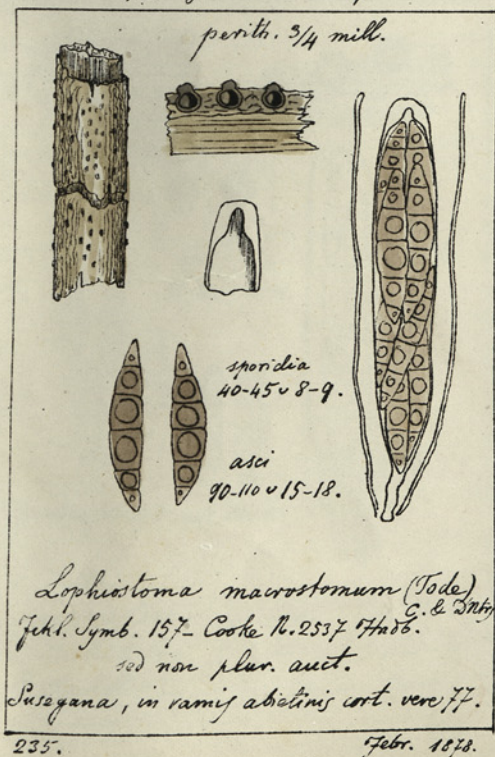 perith. 3/4 mill.
sporidia
40-45 v 8-9.
asci
90-110 v 15-18.
Lophiostoma macrostomum (Tode)
C. & DNtrs
Fckl. Symb. 157 - Cooke N. 2537 Hndb.
sed non plur. auct.
Susegana, in ramis abietinis cort. vere 77.
235. Febr. 1878.